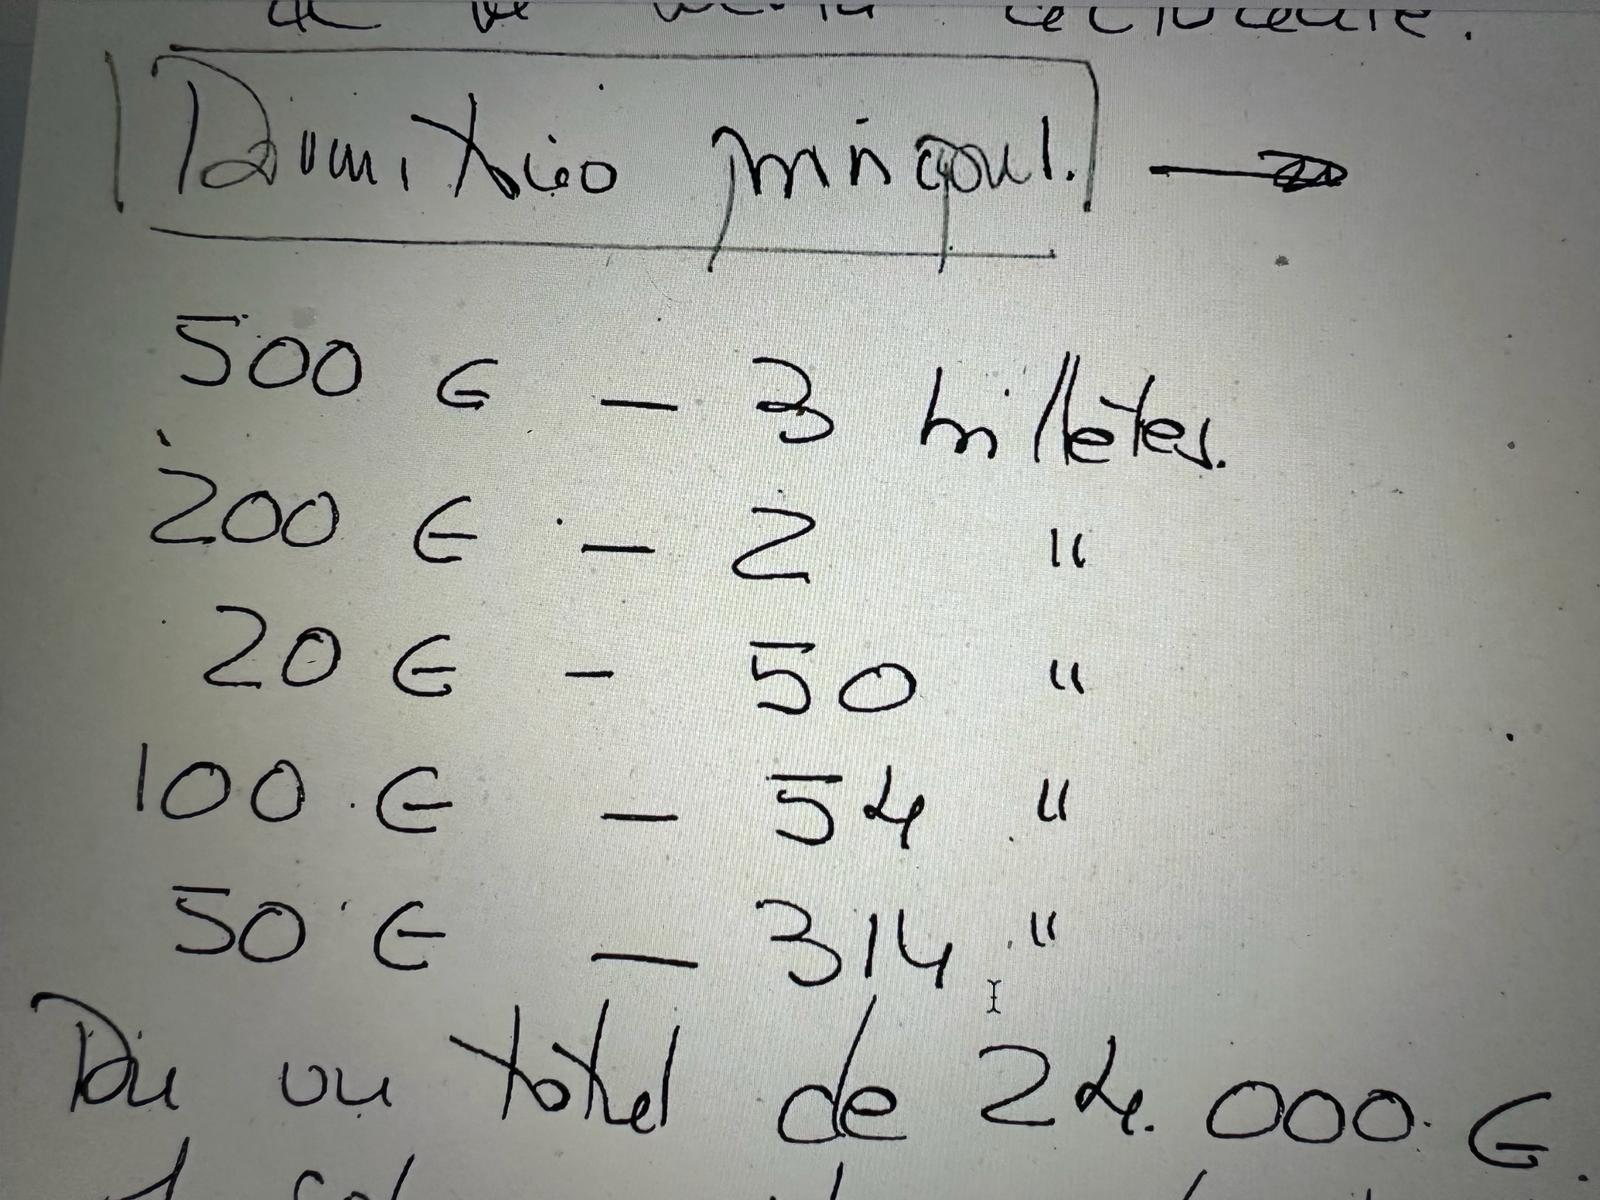 Domitico principal.
500 € - 3 billetes.
200 € - 2 "
20 € - 50 "
100 € - 54 "
50 € - 314 "
Da un total de 24.000 €.